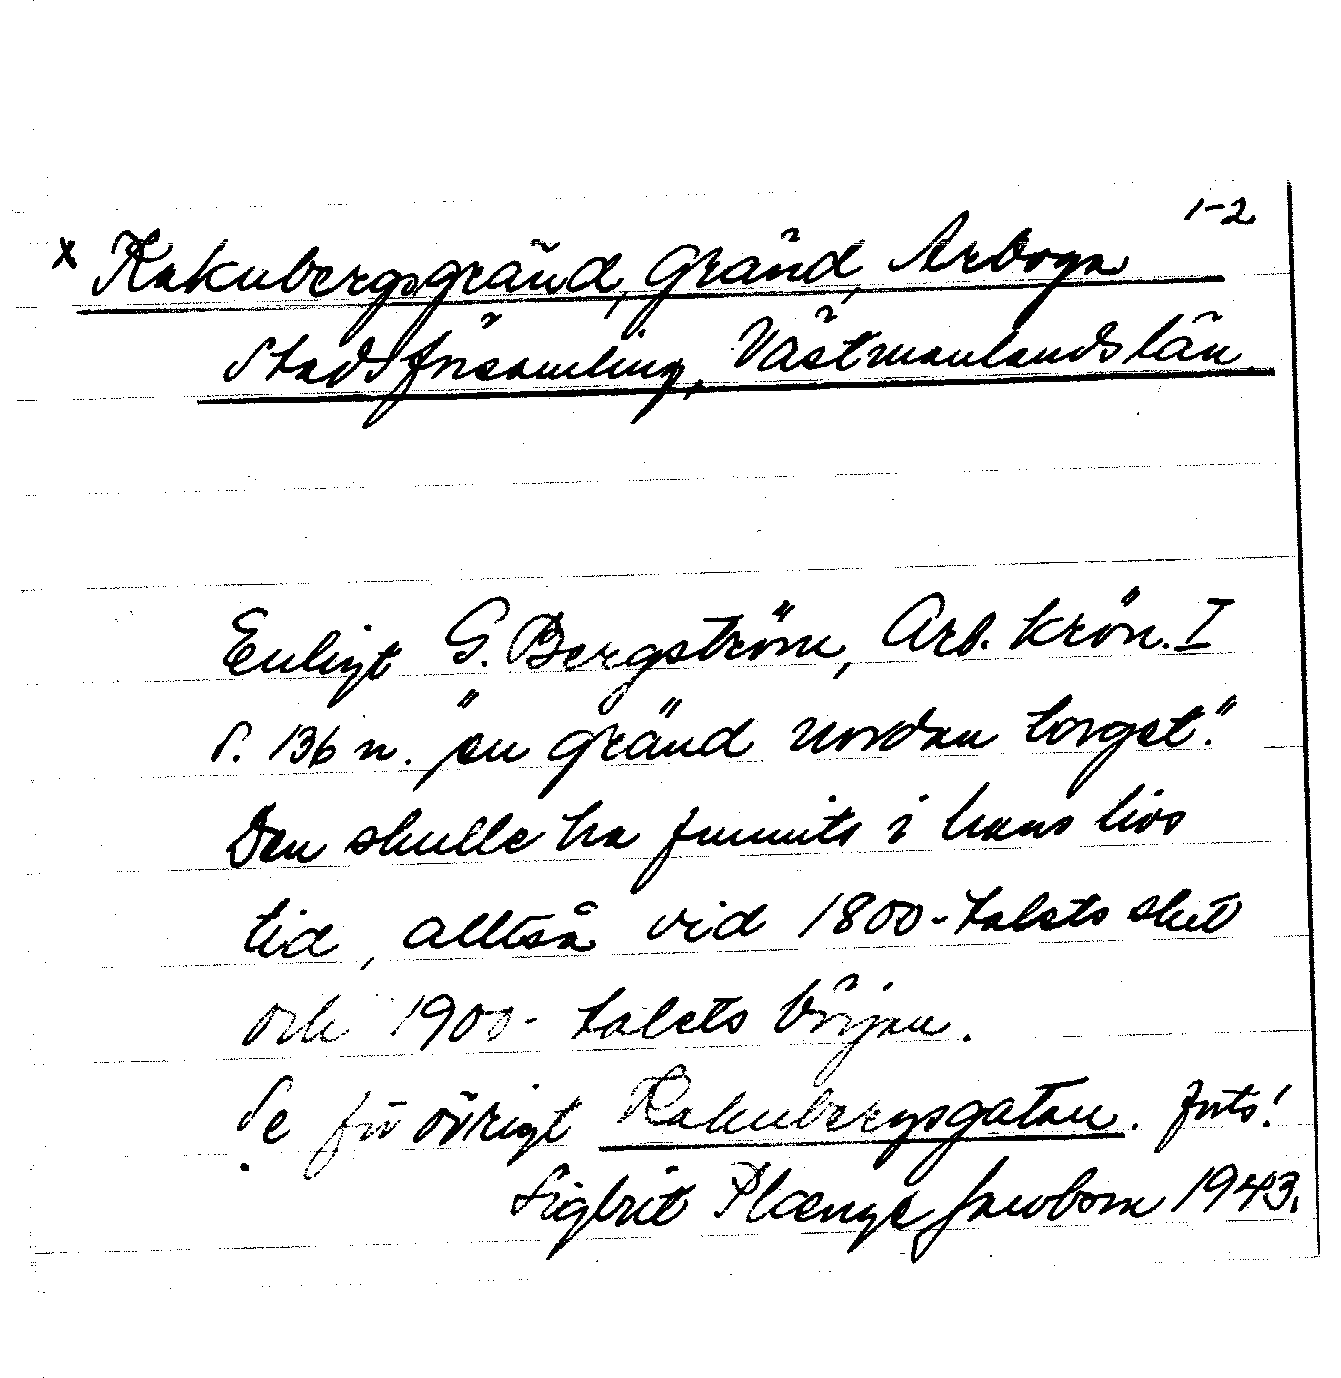 1-2
x Kakubergsgränd, Gränd, Arboga
Stadsförsamling, Västmanlands län
Enligt G. Bergström, Arb. krön. I
s. 136 n. "en gränd nordan torget".
Den skulle ha funnits i hans livs
tid, alltså vid 1800-talets slut
och 1900-talets början.
Se för övrigt Kakubergsgatan. forts!
Sigbrit Plænge Jacobson 1943.